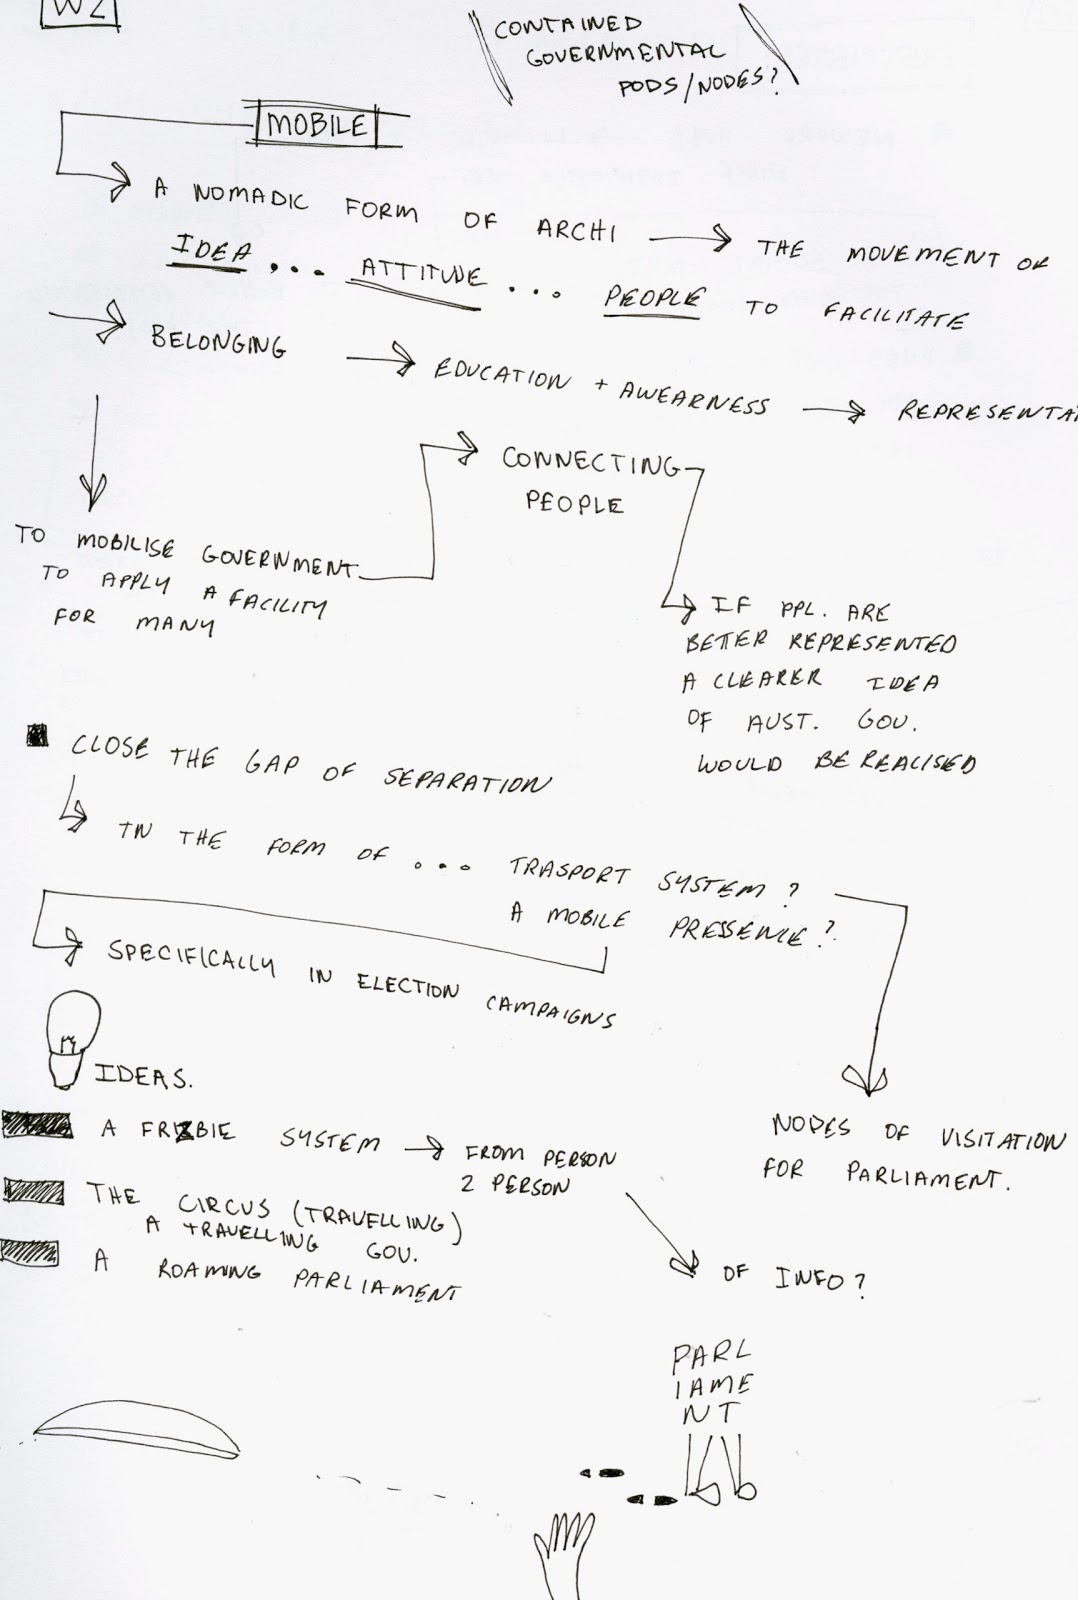 W2
CONTAINED
GOVERNMENTAL
PODS/NODES?
MOBILE
A NOMADIC FORM OF ARCHI → THE MOVEMENT OF
IDEA ... ATTITUDE ... PEOPLE TO FACILITATE
BELONGING → EDUCATION + AWEARNESS → REPRESENTA
CONNECTING
PEOPLE
TO MOBILISE GOVERNMENT
TO APPLY A FACILITY
FOR MANY
IF PPL. ARE
BETTER REPRESENTED
A CLEARER IDEA
OF AUST. GOV.
WOULD BE REALISED
CLOSE THE GAP OF SEPARATION
IN THE FORM OF ... TRASPORT SYSTEM?
A MOBILE PRESSENCE?
SPECIFICALLY IN ELECTION CAMPAIGNS
IDEAS.
NODES OF VISITATION
FOR PARLIAMENT.
A FRIZBIE SYSTEM → FROM PERSON
2 PERSON
THE CIRCUS (TRAVELLING)
A TRAVELLING GOV.
A ROAMING PARLIAMENT
OF INFO?
PARL
IAME
NT